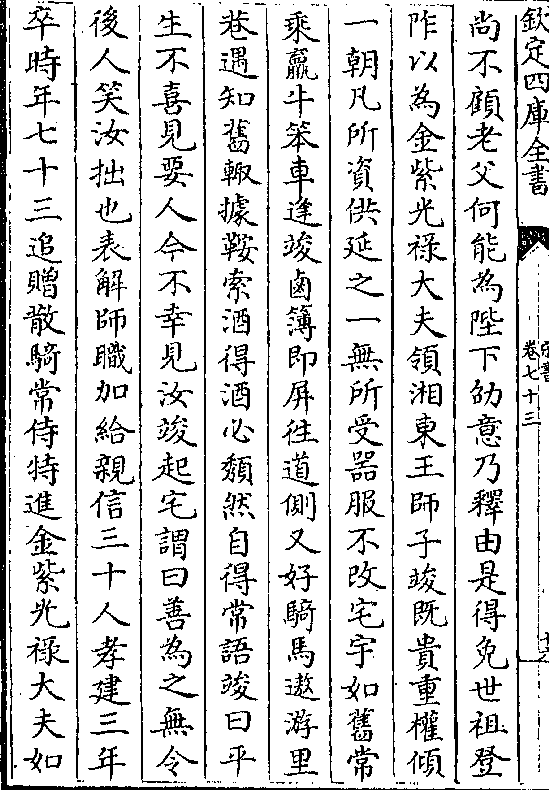 欽定四庫全書
卷七十三
尚不顧老父何能為陛下劭意乃釋由是得免世祖登
阼以為金紫光祿大夫領湘東王師子竣既貴重權傾
一朝凡所資供延之一無所受器服不改宅宇如舊常
乘羸牛笨車逢竣鹵簿即屏徃道側又好騎馬遨游里
巷遇知舊輙據鞍索酒得酒必頹然自得常語竣曰平
生不喜見要人今不幸見汝竣起宅謂曰善為之無令
後人笑汝拙也表解師職加給親信三十人孝建三年
卒時年七十三追贈散騎常侍特進金紫光祿大夫如